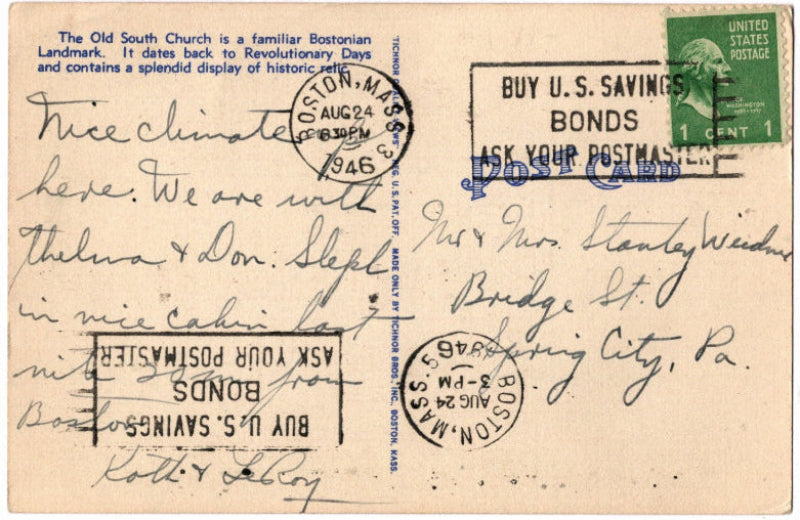 The Old South Church is a familiar Bostonian
Landmark. It dates back to Revolutionary Days
and contains a splendid display of historic relic
Nice climate
here. We are with
Thelma & Don. Slept
in nice cabin last
nite from
Boston
Kath & LeRoy
BOSTON, MASS. 3
AUG 24
630 PM
1946
MADE ONLY BY TICHNOR BROS., INC., BOSTON, MASS.
BUY U.S. SAVINGS
BONDS
ASK YOUR POSTMASTER
UNITED
STATES
POSTAGE
WASHINGTON
1 CENT 1
POST CARD
Mr & Mrs. Stanley Weidner
Bridge St.
Spring City, Pa.
BUY U.S. SAVINGS
BONDS
ASK YOUR POSTMASTER
BOSTON, MASS.
AUG 24
3-PM
1946